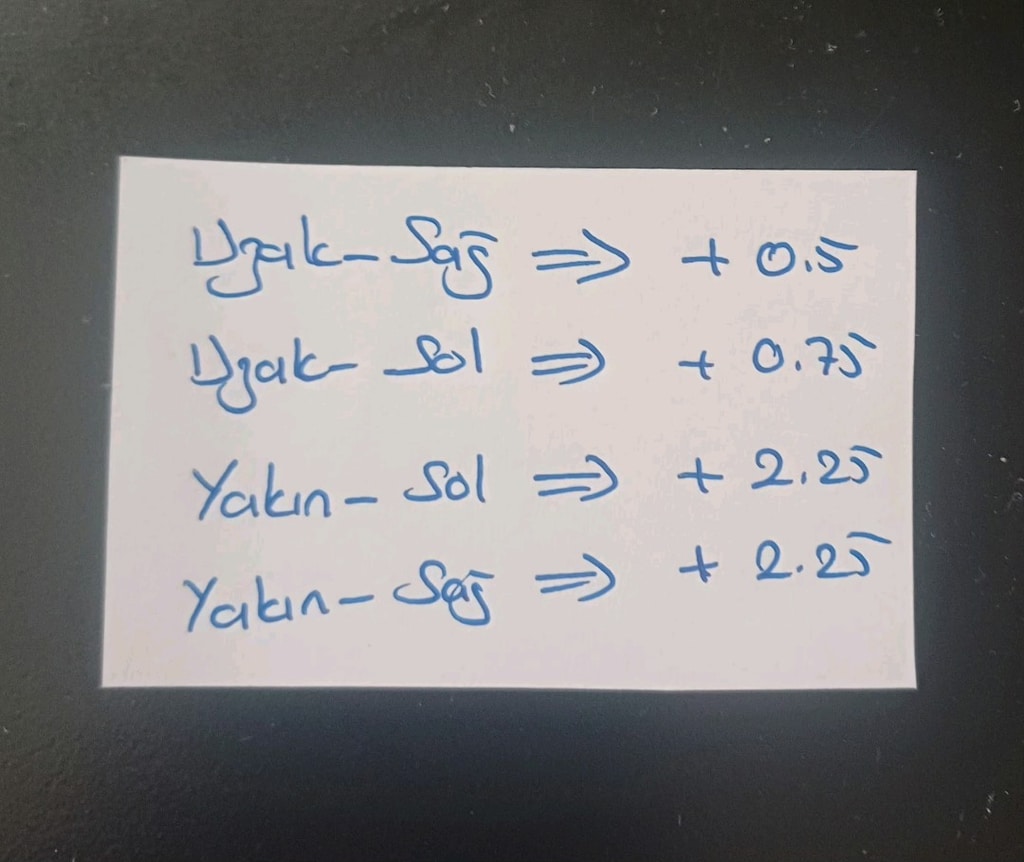 Uzak-Sağ ⇒ + 0.5
Uzak- Sol ⇒ + 0.75
Yakın- Sol ⇒ + 2.25
Yakın- Sağ ⇒ + 2.25